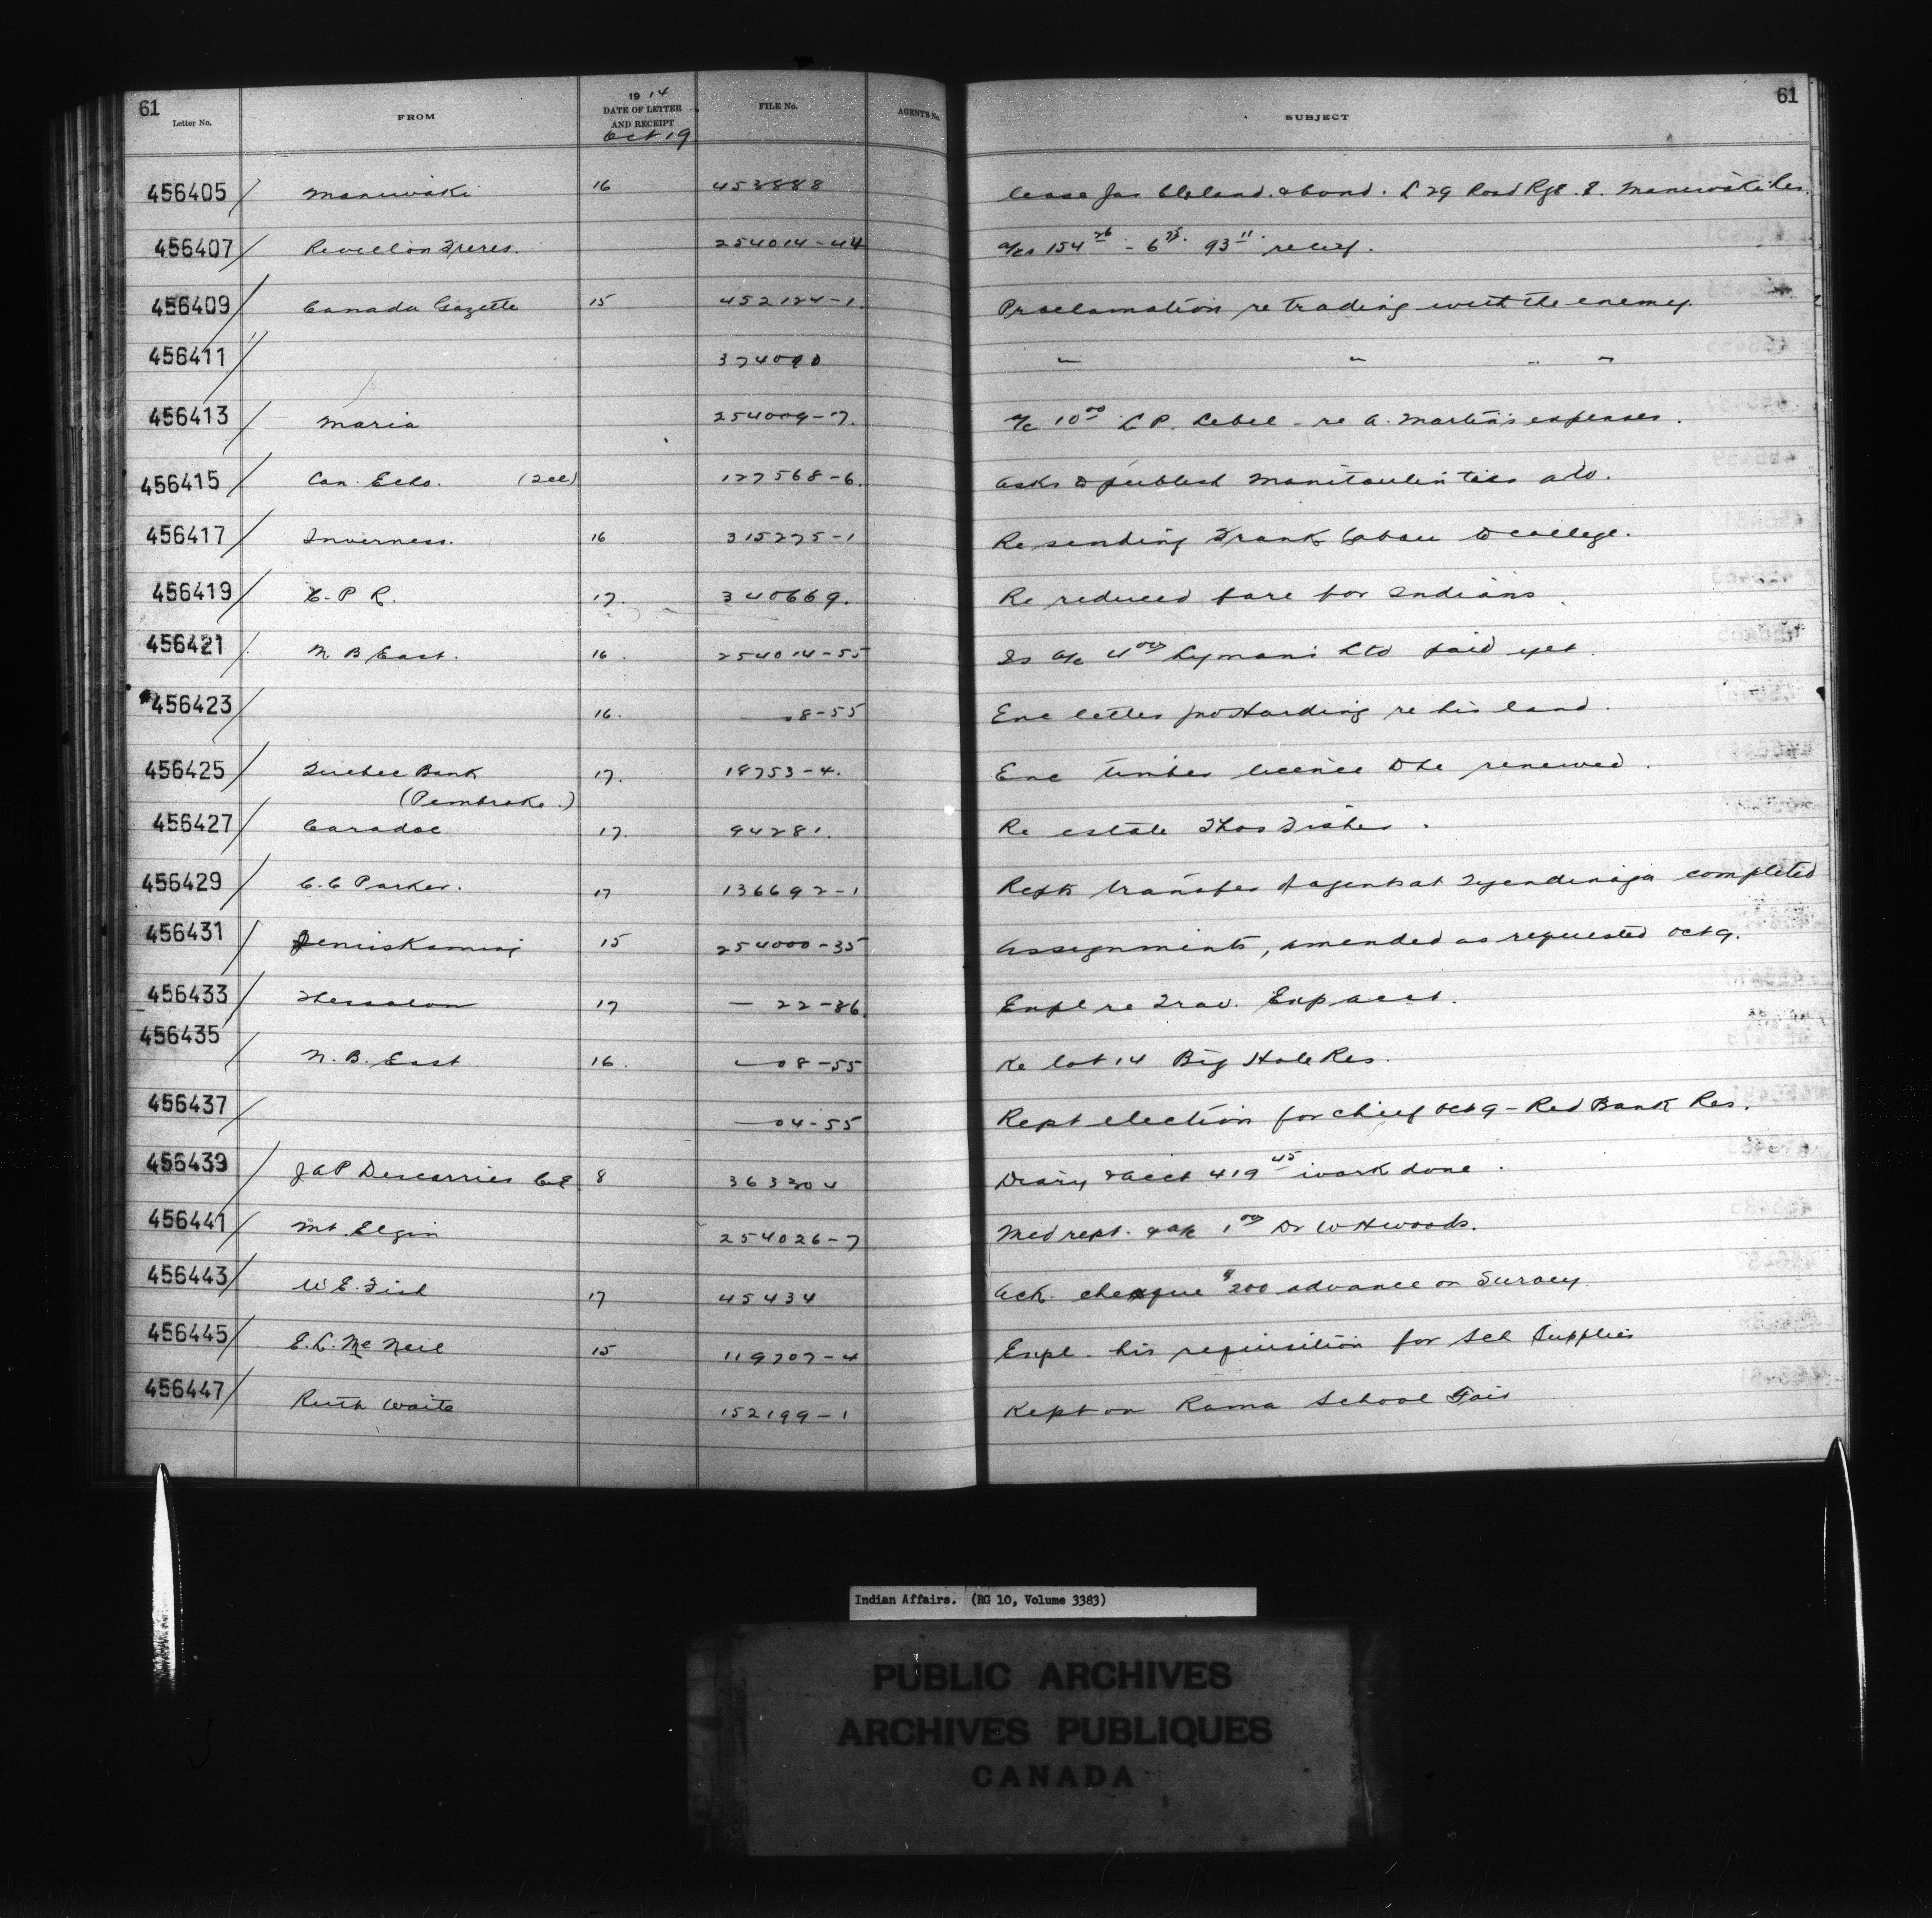 61 61
Letter No. FROM 1914 DATE OF LETTER AND RECEIPT Oct 19 FILE No. AGENT'S No. SUBJECT
456405 Maniwaki 16 453888 lease Jas Cleland. & bond. L 29 Road Rge. 8. Maniwaki Res.
456407 Revillon Freres. 254014-44 a/cs 154 26 - 6 75. 93 11. relief.
456409 Canada Gazette 15 452124-1. Proclamation re trading with the enemy.
456411 374090 " " " "
456413 Maria 254009-7. a/c 10 00 L P. Lebel - re A. Martin's expenses.
456415 Can. Echo. 127568-6. Asks to publish Manitoulin adv.
456417 Inverness. 16 315275-1 Re sending Frank to college.
456419 C. P R. 17. 340669. Re reduced fare for Indians.
456421 N B East. 16. 254014-55 Is a/c 4 00 Lymans Ltd paid yet.
456423 16. 8-55 Enc letter Jno Harding re his land.
456425 Quebec Bank 17. 18753-4. Enc timber licence to be renewed.
(Pembroke.)
456427 Caradoc 17. 94281. Re estate Thos Fisher.
456429 C. C Parker. 17 136692-1 Repts transfer of agents at Tyendinaga completed
456431 Temiskaming 15 254000-35 Assignments, amended as requested Oct 9.
456433 Thessalon 17 — 22-36. Expl re Trav. Exp acct.
456435 N. B. East 16. — 08-55 Re lot 14 Big Hole Res.
456437 — 04-55 Rept election for chief Oct 9 - Red Bank Res.
456439 J A P Descarries C.E. 8 363304 Diary & acct 419 45 work done.
456441 Mt. Elgin 254026-7 Med rept. & a/c 1 00 Dr W H Woods.
456443 W E. Fish 17 45434 Ack. cheque $200 advance on Survey.
456445 E. L. McNeil 15 119707-4 Expl. his requisition for Sch Supplies
456447 Ruth Waite 152199-1 Rept on Rama School Fair
Indian Affairs. (RG 10, Volume 3383)
PUBLIC ARCHIVES
ARCHIVES PUBLIQUES
CANADA